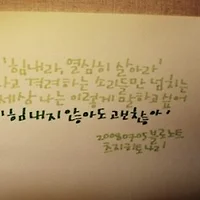 '힘내라, 열심히 살아라'
라고 격려하는 소리들만 넘치는
세상, 나는 이렇게 말하고 싶어
'힘내지 않아도 괜찮아'
2008 09 05